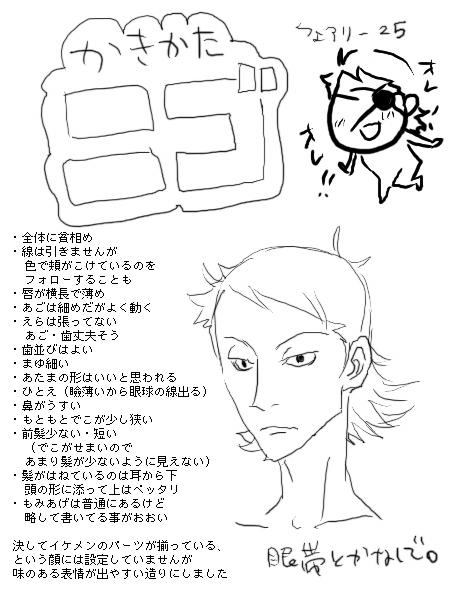 かきかた
ニゴ
フェアリー25
オレ
オレ
・全体に貧相め
・線は引きませんが
色で頬がこけているのを
フォローすることも
・唇が横長で薄め
・あごは細めだがよく動く
・えらは張ってない
あご・歯丈夫そう
・歯並びはよい
・まゆ細い
・あたまの形はいいと思われる
・ひとえ（瞼薄いから眼球の線出る）
・鼻がうすい
・もともとでこが少し狭い
・前髪少ない・短い
（でこがせまいので
あまり髪が少ないように見えない）
・髪がはねているのは耳から下
頭の形に添って上はペッタリ
・もみあげは普通にあるけど
略して書いてる事がおおい
決してイケメンのパーツが揃っている、
という顔には設定していませんが
味のある表情が出やすい造りにしました
眼帯とかなしで。